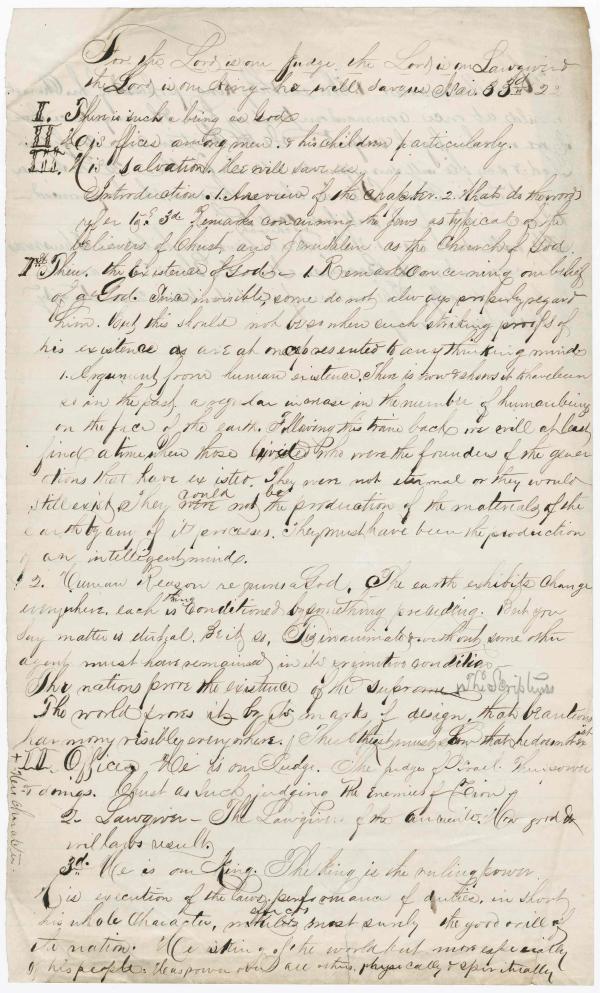 For the Lord is our Judge, the Lord is our Lawgiver
the Lord is our King – he will save us Isai. 33rd 22
I. There is such a being as God
II His offices among men & his children particularly.
III. His salvation. He will save us
Introduction. 1. A review of the chapter. 2. Whats do the words
refer to? 3d Remarks concerning the Jews as typical of the
believers of Christ and of Jerusalem as the Church of God
Ist Then. the Existence of God – 1. Remarks concerning our belief
of a God. Since invisible, some do not always properly regard
him. But this should not be so when such striking proofs of
his existence as are at once presented to any thinking mind
1. Argument from human existence. There is now & shows it to have been
so in the past, a regular increase in the number of human beings
on the face of the earth. Following this train back we will at least
find a time when those lived who were the founders of the gener
ations that have existed. They were not eternal or they would
still exist, They could not be the production of the materials of the
earth by any of its processes. They must have been the production
of an intelligent mind.
2. Human Reason requires a God. The earth exhibits change
everywhere, each thing conditioned by something preceding. But you
say matter is eternal. Be it so, Tis inanimate & without some other
agency must have remained in its primitive condition
The nations prove the existence of the Supreme The Scriptures
The world proves it by its marks of design, that beautious
harmony visible everywhere. The Atheist must know that he does not exist
II. Offices He is our Judge. The judges of Israel. Their power
& doings. Christ as such, judging the enemies of Zion
+ His Character.
2 – Lawgiver – The Lawgivers of the ancients. How good &
evil laws result.
3d. He is our King. The King is the ruling power.
His execution of the laws, performance of duties, in short
his whole character, most surely the good or ill of
the nation. He is king of the world but more especially
of his people. Has power over all others, physically & spiritually